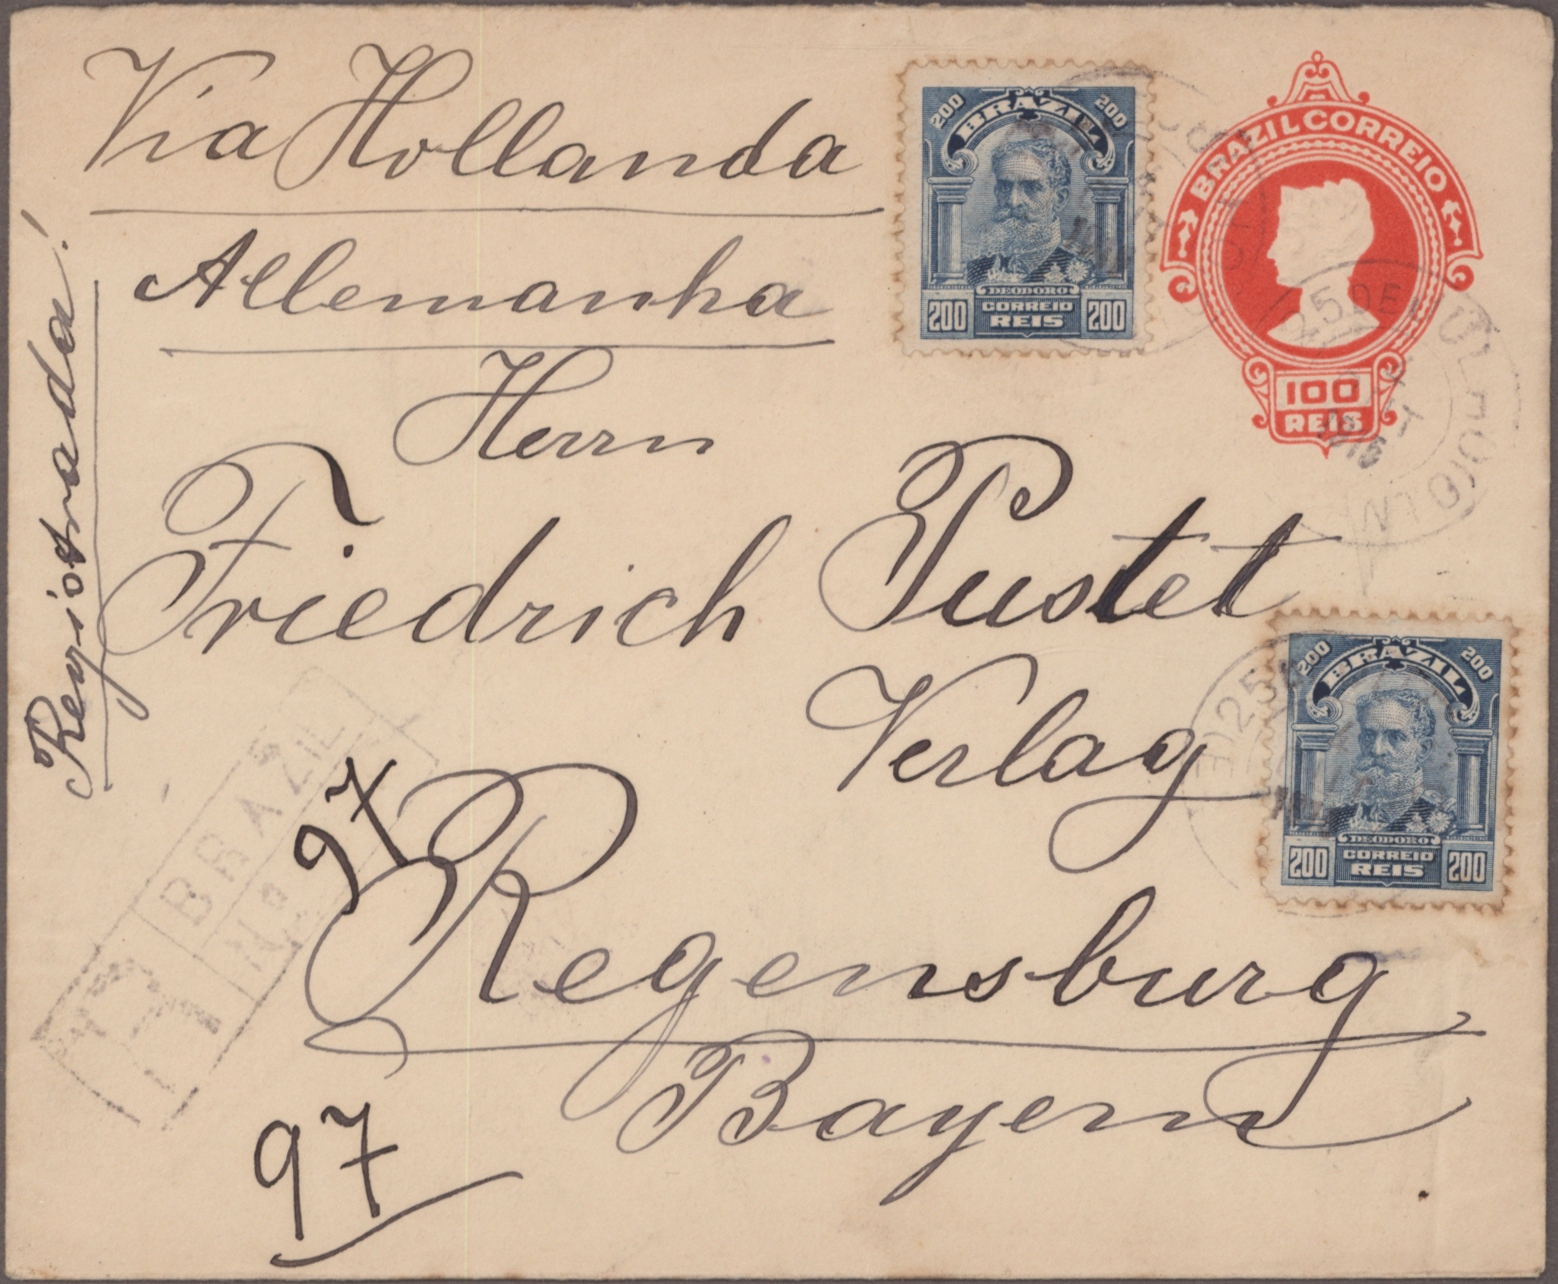 Via Hollanda
Allemanha
Herrn
Friedrich Pustet
Verlag
Regensburg
Bayern
Registrada!
97
97
BRAZIL
Nº
R
200 BRAZIL 200
DEODORO
200 CORREIO 200
REIS
BRAZIL CORREIO
100
REIS
25 DE JUL
200 BRAZIL 200
DEODORO
200 CORREIO 200
REIS